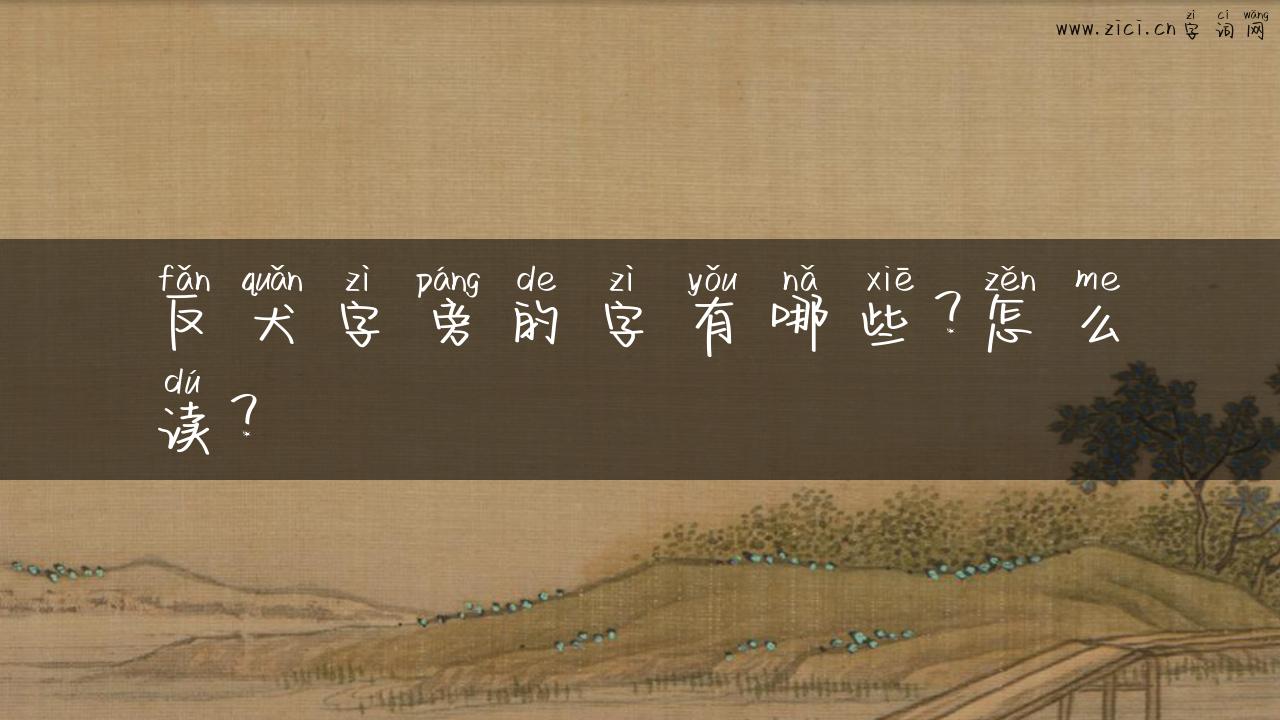 zì cí wǎng
www.zici.cn字词网
fǎn quǎn zì páng de zì yǒu nǎ xiē zěn me
反犬字旁的字有哪些？怎么
dú
读？